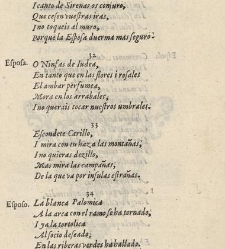 I canto de Sirenas os conjuro,
Que cesen vuestras iras,
I no toqueis al muro,
Porque la Esposa duerma mas seguro.
32
Esposa. O Ninfas de Iudea,
En tanto que en las flores i rosales
El ambar perfumea,
Mora en los arrabales,
I no querais tocar nuestros umbrales.
33
Escondete Carillo,
I mira con tu haz a las montañas;
I no quieras dezillo,
Mas mira las campañas,
De la que va por insulas estrañas.
34
Esposo. La blanca Palomica
A la arca con el ramo se ha tornado,
I ya la tortolica
Al socio deseado,
En las riberas verdes ha hallado.